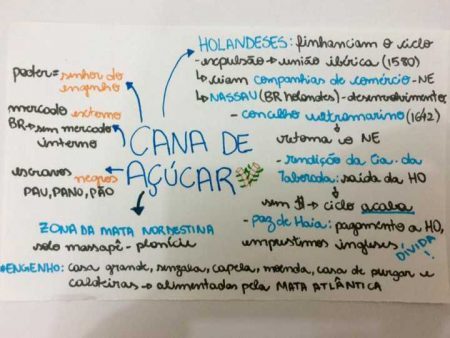 HOLANDESES: finhanciam o ciclo
- expulsão → união ibérica (1580)
↳ criam companhias de comércio - NE
↳ NASSAU (BR holandes) - desenvolvimento
- concelho ultramarino (1642)
↓
retoma o NE
- rendição da Cia. da
Taborada: saída da HO
↓
sem $ → ciclo acaba
- paz de Haia: pagamento a HO,
empréstimos ingleses
DÍVIDA!
poder = senhor do
engenho
mercado externo
BR → sem mercado
interno
CANA DE
AÇÚCAR
escravos negros
PAU, PANO, PÃO
ZONA DA MATA NORDESTINA
solo massapê - planície
*ENGENHO: casa grande, senzala, capela, moenda, casa de purgar e
caldeiras → alimentadas pela MATA ATLÂNTICA